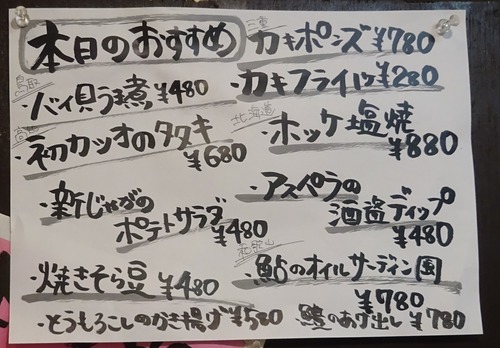 本日のおすすめ
鳥取
・バイ貝うま煮 ¥480
・初カツオのタタキ
¥680
・新じゃがの
ポテトサラダ
¥480
・焼きそら豆 ¥480
・とうもろこしのかき揚げ ¥580
三重
カキポンズ ¥780
・カキフライ1ケ ¥280
北海道
・ホッケ塩焼
¥880
・アスペラの
酒盗ディップ
¥480
和歌山
・鮎のオイルサーディン風
¥780
・鱧のあげ出し ¥780